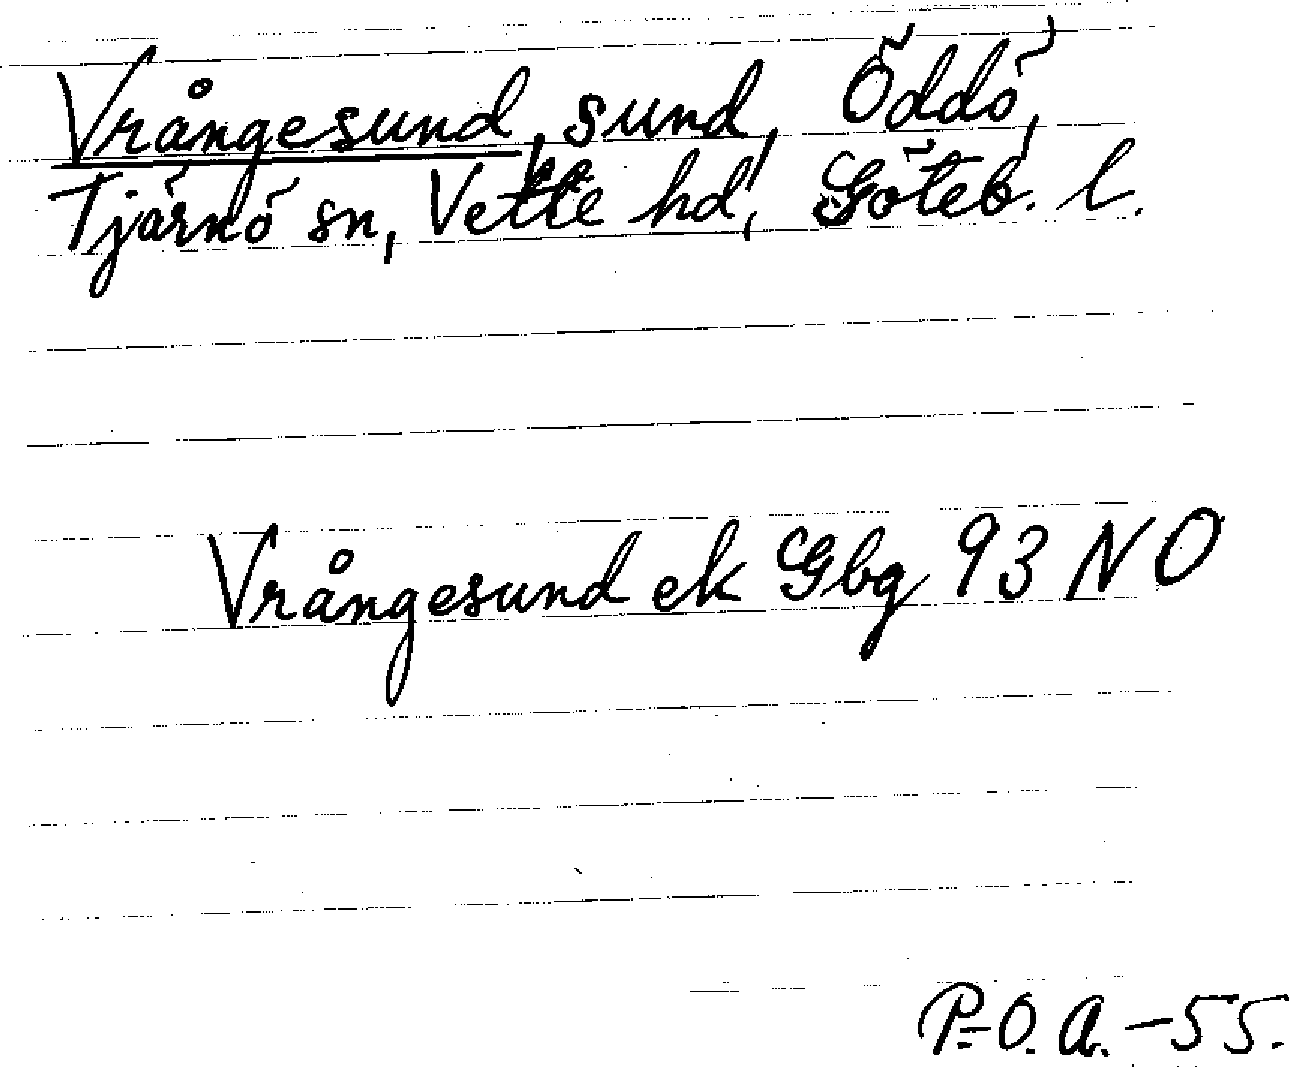 Vrångesund, sund, Öddö,
Tjärnö sn, Vette hd, Göteb. l.
Vrångesund ek Gbg 93 NO
P.-O. A. -55.